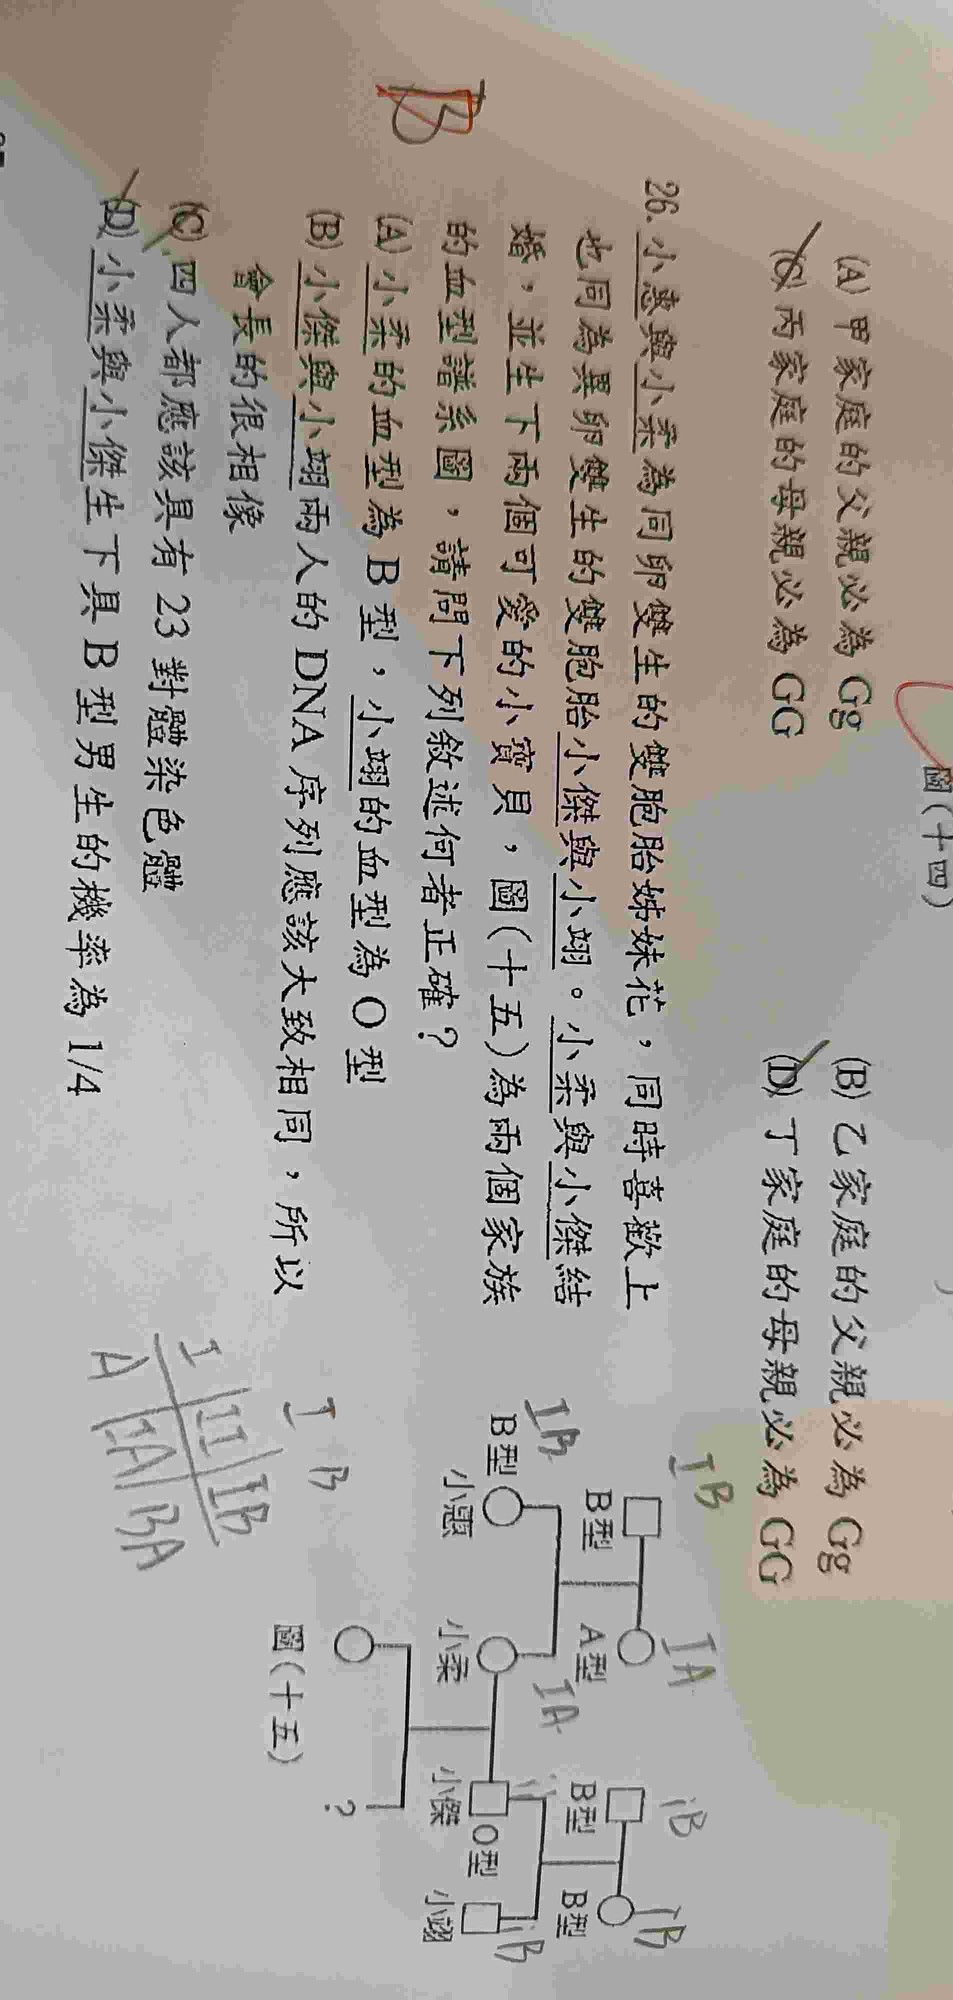 圖(十四)
(A) 甲家庭的父親必為 Gg
(B) 乙家庭的父親必為 Gg
(C) 丙家庭的母親必為 GG
(D) 丁家庭的母親必為 GG
B
26. 小惠與小柔為同卵雙生的雙胞胎姊妹花，同時喜歡上
也同為異卵雙生的雙胞胎小傑與小翊。小柔與小傑結
婚，並生下兩個可愛的小寶貝，圖(十五)為兩個家族
的血型譜系圖，請問下列敘述何者正確？
(A) 小柔的血型為 B 型，小翊的血型為 O 型
(B) 小傑與小翊兩人的 DNA 序列應該大致相同，所以
會長的很相像
(C) 四人都應該具有 23 對體染色體
(D) 小柔與小傑生下具 B 型男生的機率為 1/4
IB
IA
iB
iB
B型
A型
B型
B型
IB
IA
ii
iB
B型
小惠
小柔
小傑
O型
小翊
?
圖(十五)
I B
I II IB
A IA BA